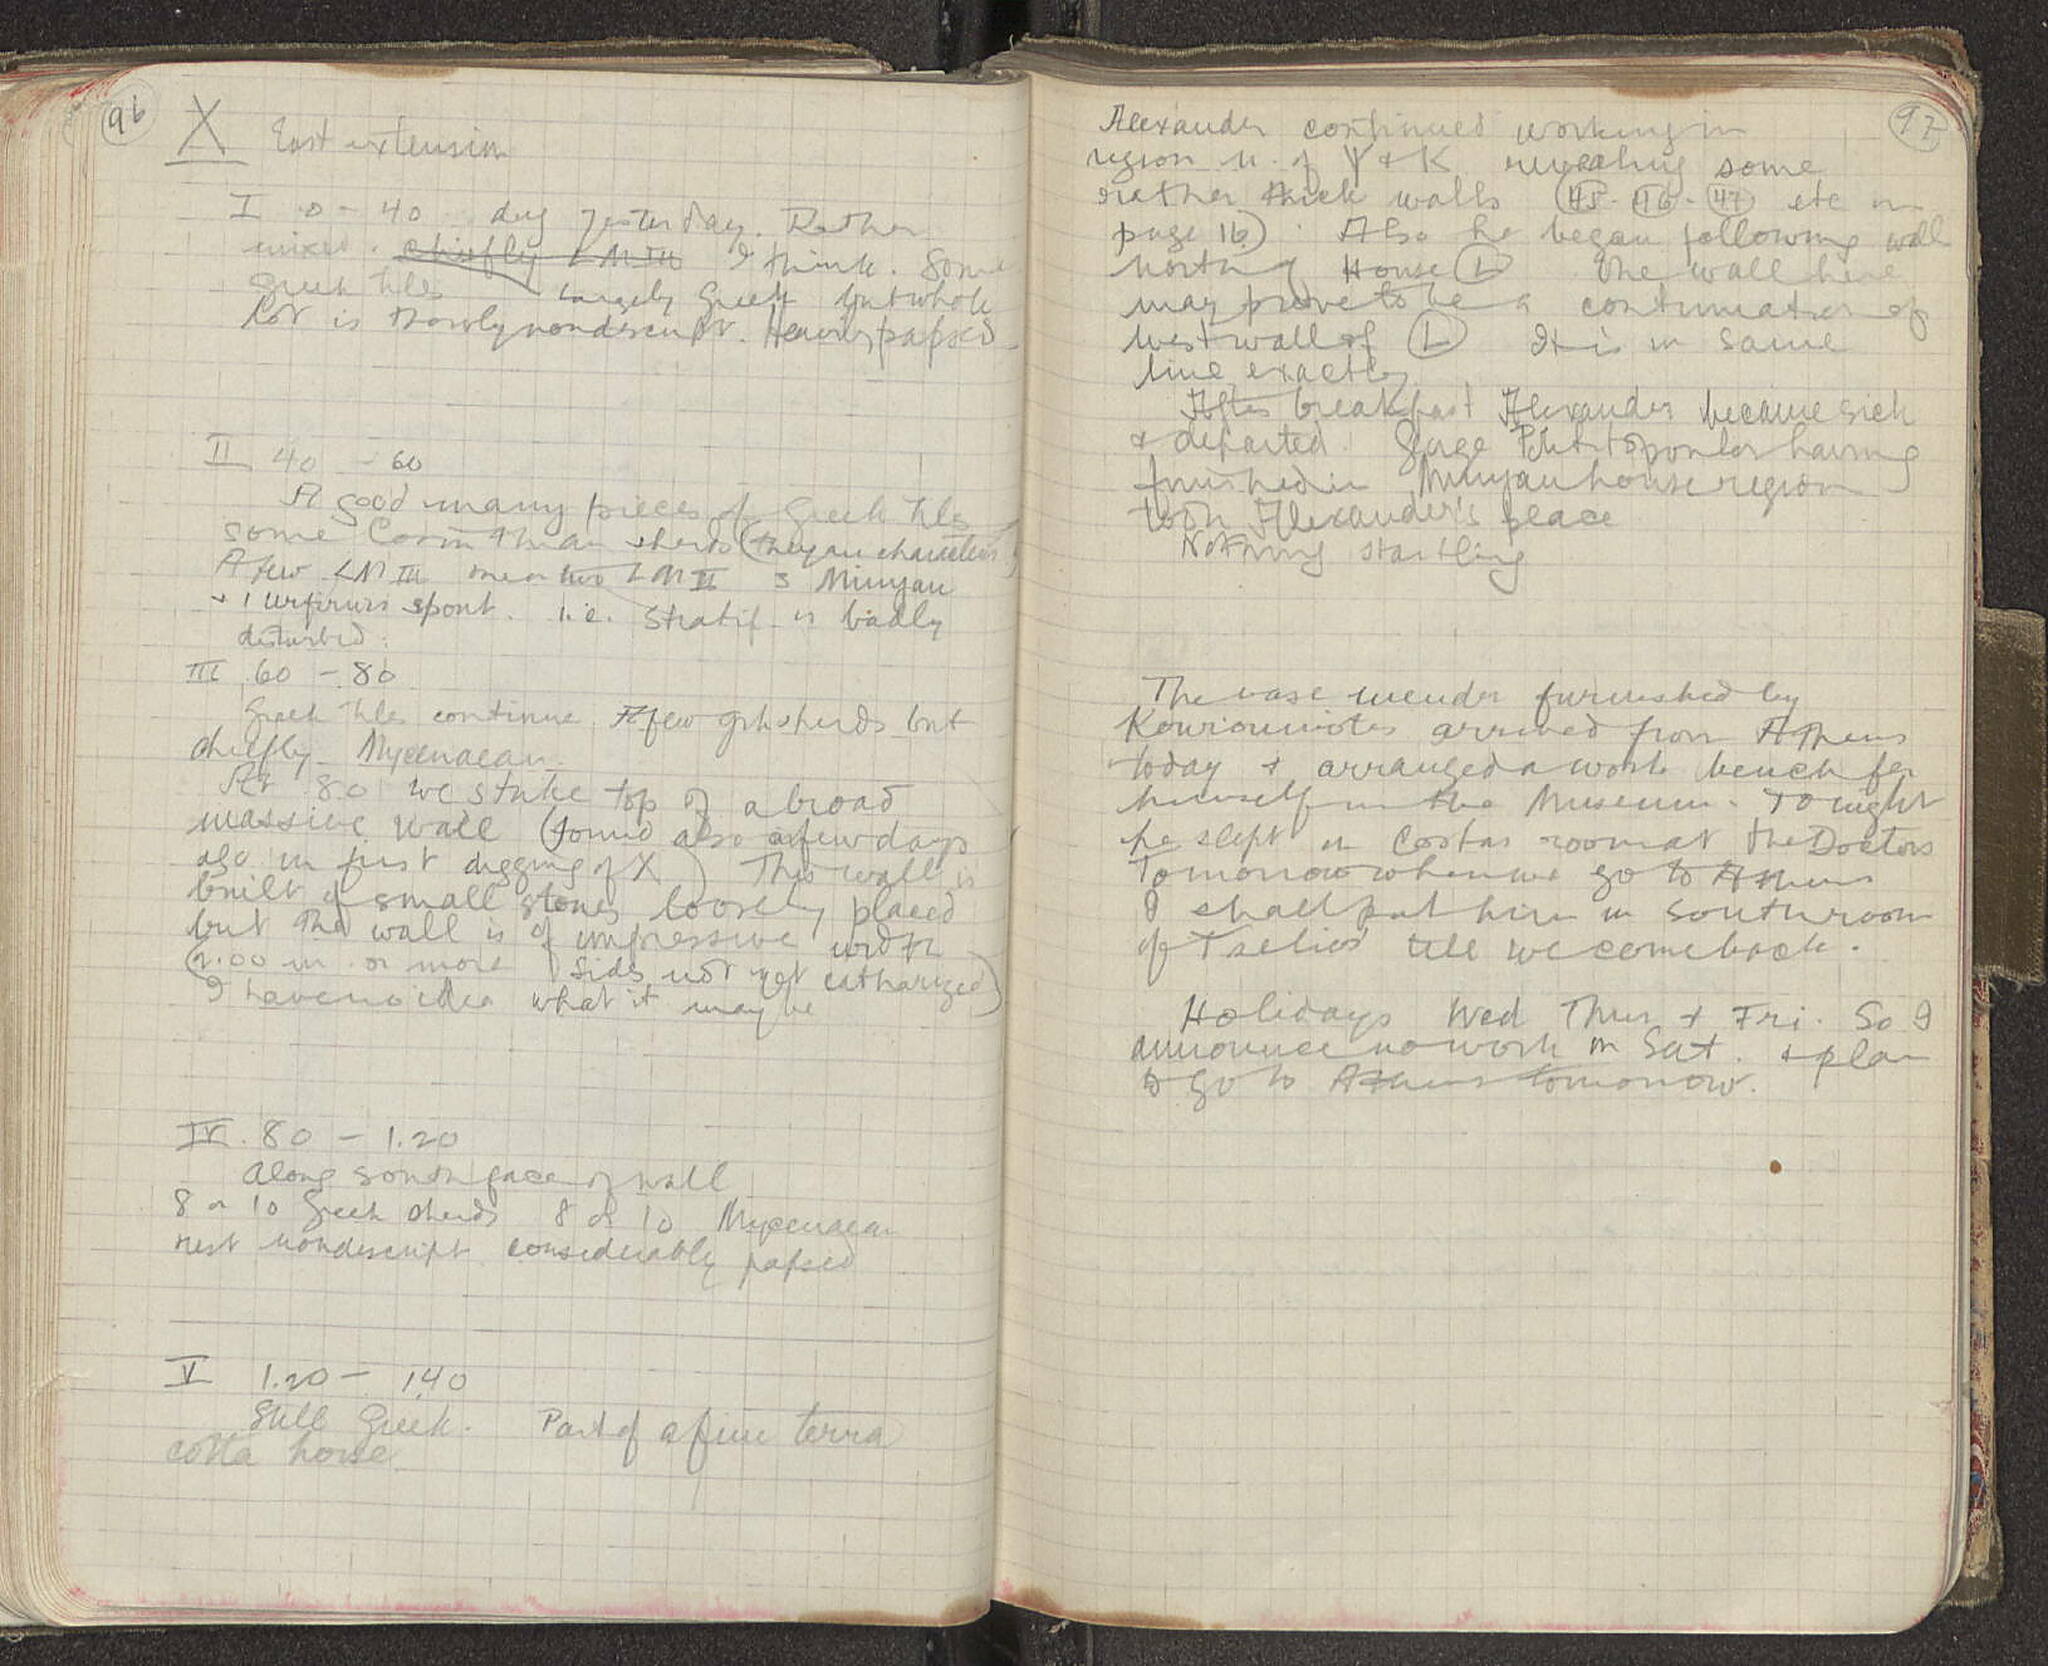 96
X East extension
I 0 - 40 dug yesterday. Rather
mixed. chiefly LM III I think. Some
Greek tiles largely Greek but whole
lot is nondescript. Heavily papsed
II 40 - 60
A good many pieces of Greek tiles
some Corinthian sherds (they are characteris
A few LM III one or two LM II 3 Minyan
+ 1 urfirnis spout. i.e. Stratif. is badly
disturbed.
III 60 - 80
Greek tiles continue A few grk sherds but
chiefly Mycenaean.
At 80 we strike top of a broad
massive wall (found also a few days
ago in first digging of X) This wall is
built of small stones loosely placed
but the wall is of impressive width
(2.00 m. or more Sides not yet
I have no idea what it may be
IV. 80 - 1.20
Along south face of wall
8 or 10 Greek sherds 8 or 10 Mycenaean
rest nondescript considerably papsed
V 1.20 - 1.40
Still Greek. Part of a fine terra
cotta horse
97
Alexander continued working in
region n. of Y & K revealing some
rather thick walls (45 - 46 - 47 etc on
page 16). Also he began following wall
north of House L One wall here
may prove to be a continuation of
west wall of L It is in same
line exactly
After breakfast Alexander became sick
& departed. George having
finished in Minyan house region
took Alexander's place
Nothing startling
The vase mender furnished by
Kourouniotes arrived from Athens
today & arranged a work bench for
himself in the Museum. Tonight
he slept in Costas room at the Doctors
Tomorrow when we go to Athens
I shall put him in south room
of Tselios' till we come back.
Holidays Wed Thurs & Fri. So I
announce no work on Sat. & plan
to go to Athens tomorrow.